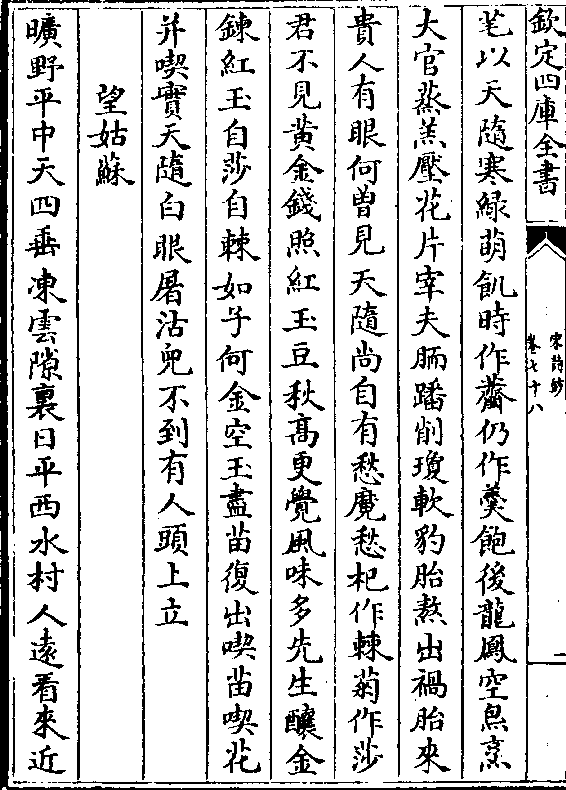 欽定四庫全書
宋詩鈔
卷七十八
芼以天隨寒綠萌飢時作虀仍作羮飽後龍鳳空烹
大官蒸羔壓花片宰夫胹蹯削瓊軟豹胎熬出禍胎來
貴人有眼何曾見天隨尚自有愁魔愁杞作棘菊作莎
君不見黄金錢照紅玉豆秋髙更覺風味多先生釀金
鍊紅玉自莎自棘如予何金空玉盡苗復出喫苗喫花
并喫實天隨白眼屠沽兒不到有人頭上立
望姑蘇
曠野平中天四垂凍雲隙裏日平西水村人逺看來近